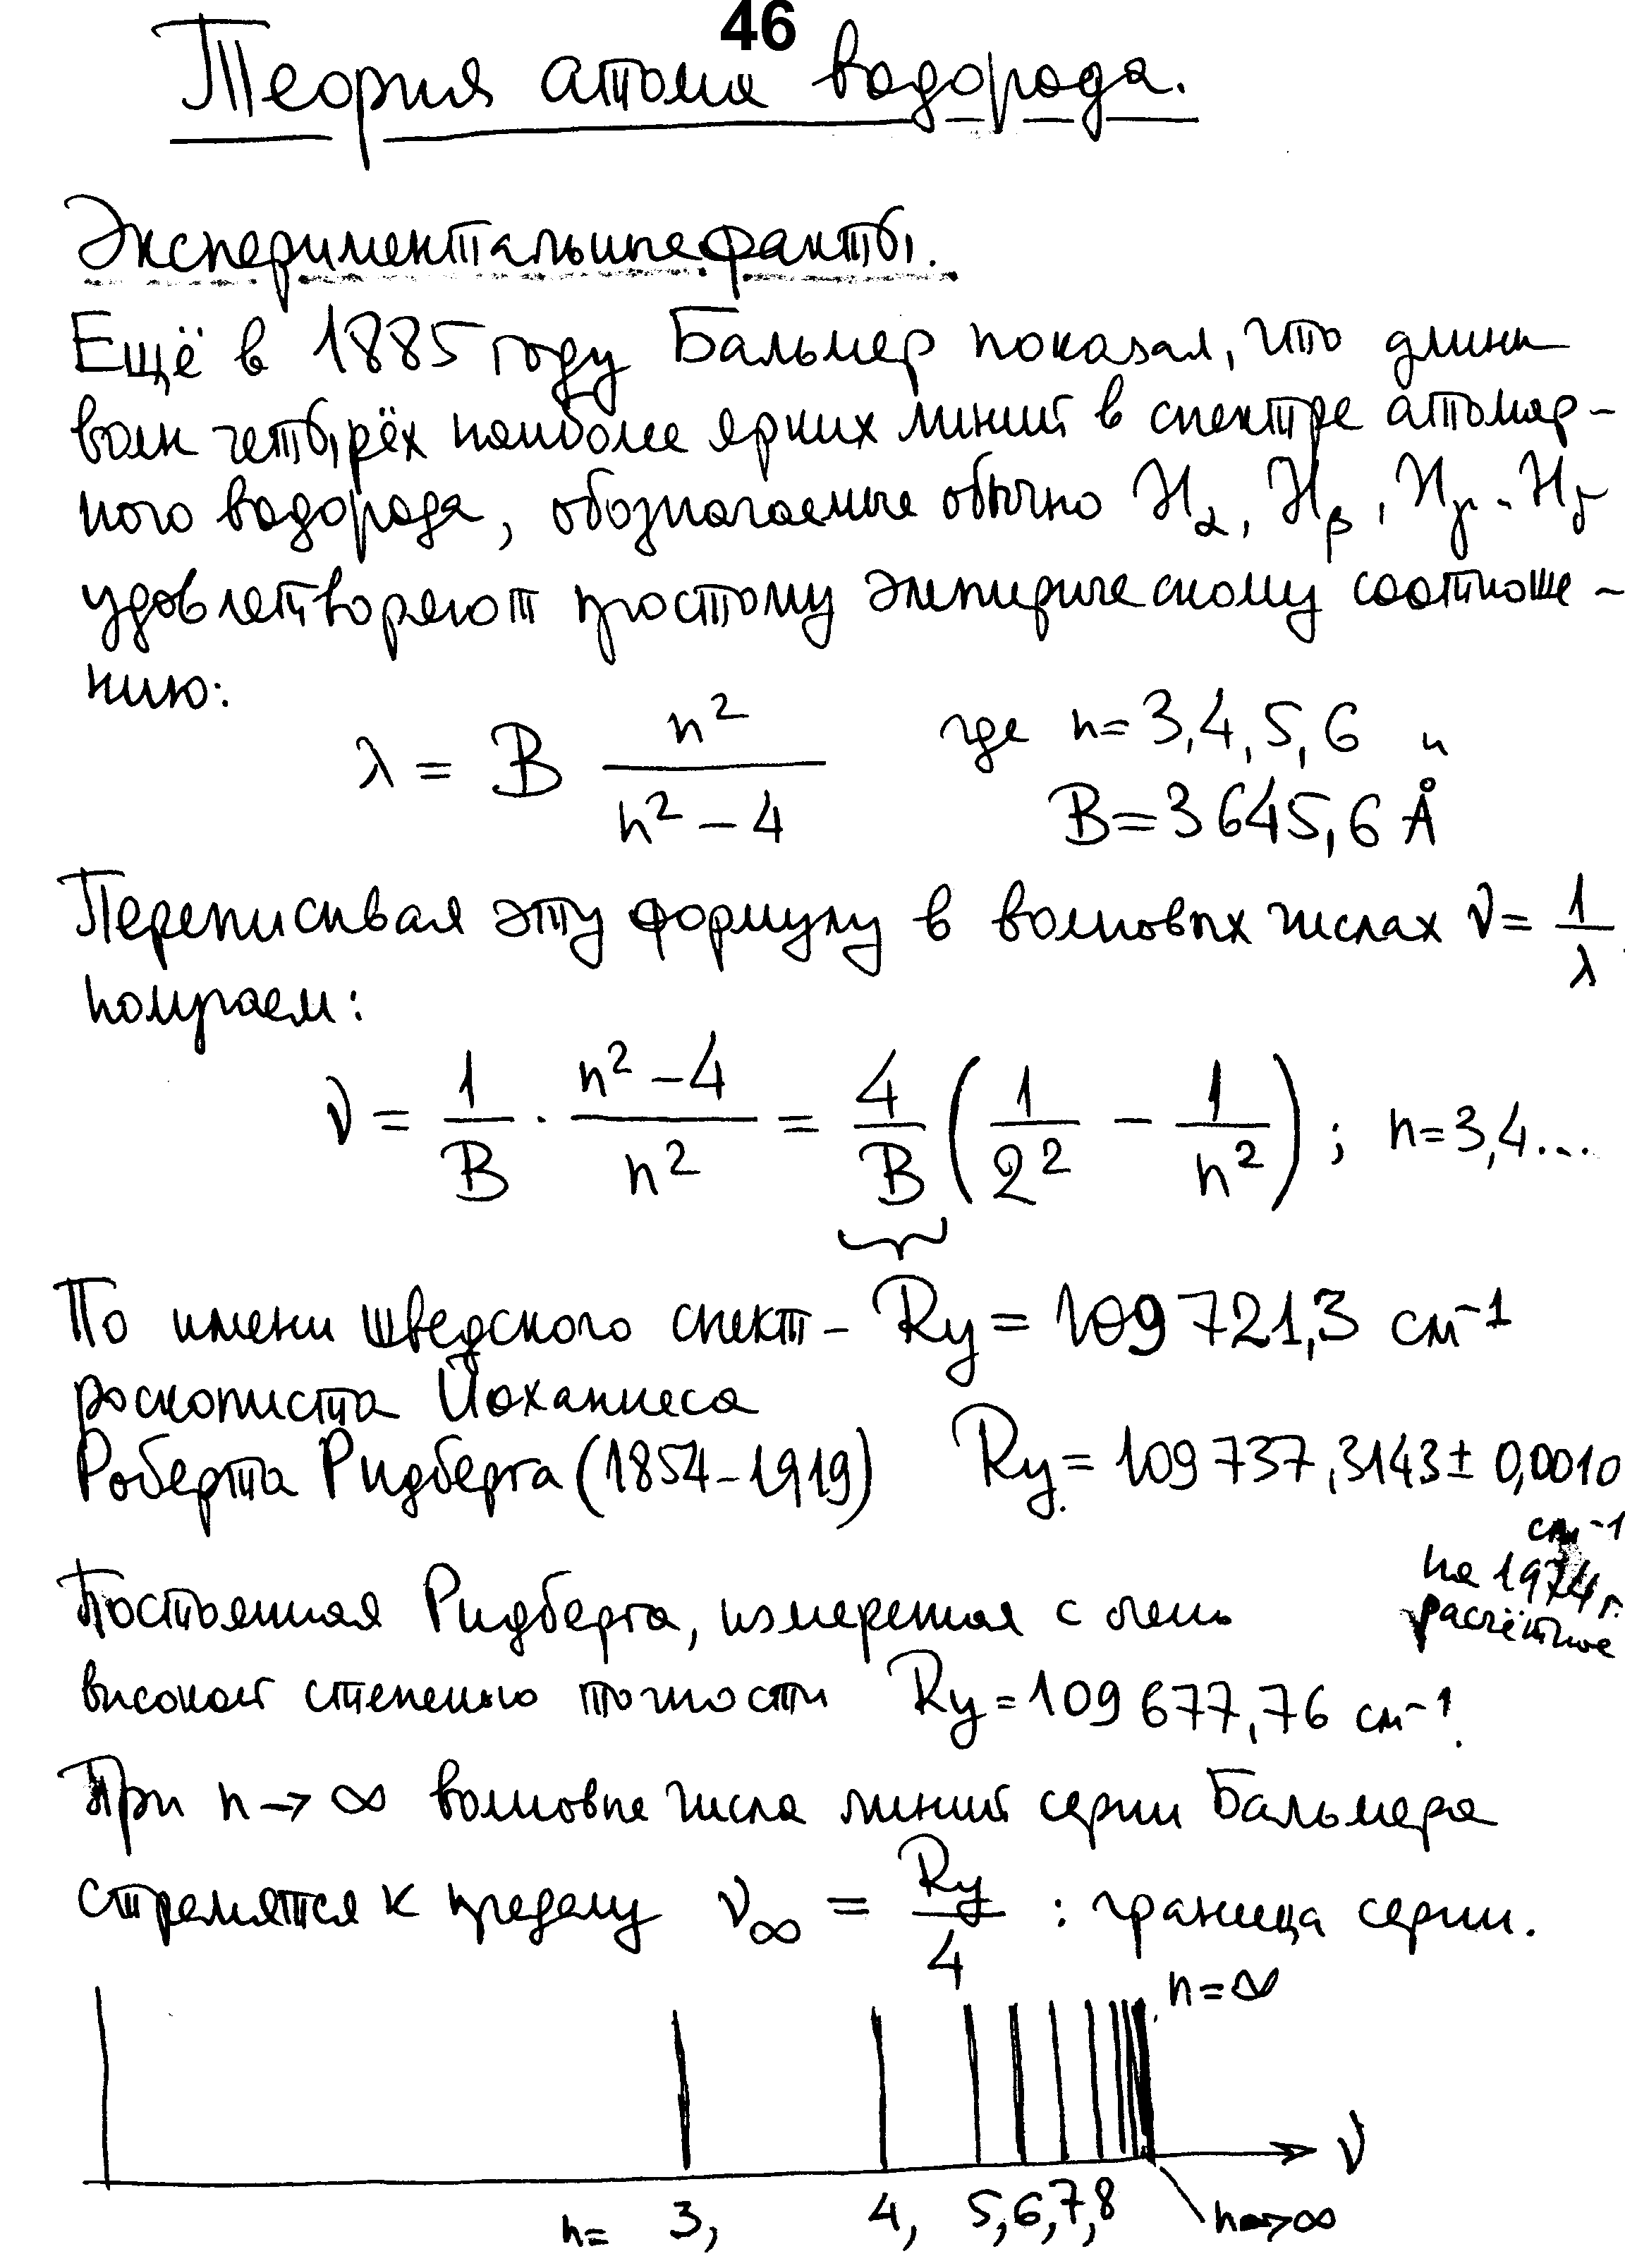 46
Теория атома водорода.
Экспериментальные факты.
Ещё в 1885 году Бальмер показал, что длины
волн четырёх наиболее ярких линий в спектре атомар-
ного водорода, обозначаемые обычно Hα, Hβ, Hγ, Hδ
удовлетворяют простому эмпирическому соотноше-
нию:
λ = B n²/(n² – 4) где n = 3, 4, 5, 6 и
B = 3645,6 Å
Переписывая эту формулу в волновых числах ν = 1/λ
получаем:
ν = 1/B · (n² – 4)/n² = 4/B (1/2² – 1/n²) ; n = 3,4...
По имени шведского спект- Ry = 109 721,3 см⁻¹
роскописта Йоханнеса
Роберта Ридберга (1854–1919) Ry = 109 737,3143 ± 0,0010
см⁻¹
на 1974 г.
расчётное
Постоянная Ридберга, измеренная с очень
высокой степенью точности Ry = 109 677,76 см⁻¹.
При n → ∞ волновые числа линий серии Бальмера
стремятся к пределу ν∞ = Ry/4 : граница серии.
n = ∞
ν
n = 3, 4, 5, 6, 7, 8 n → ∞